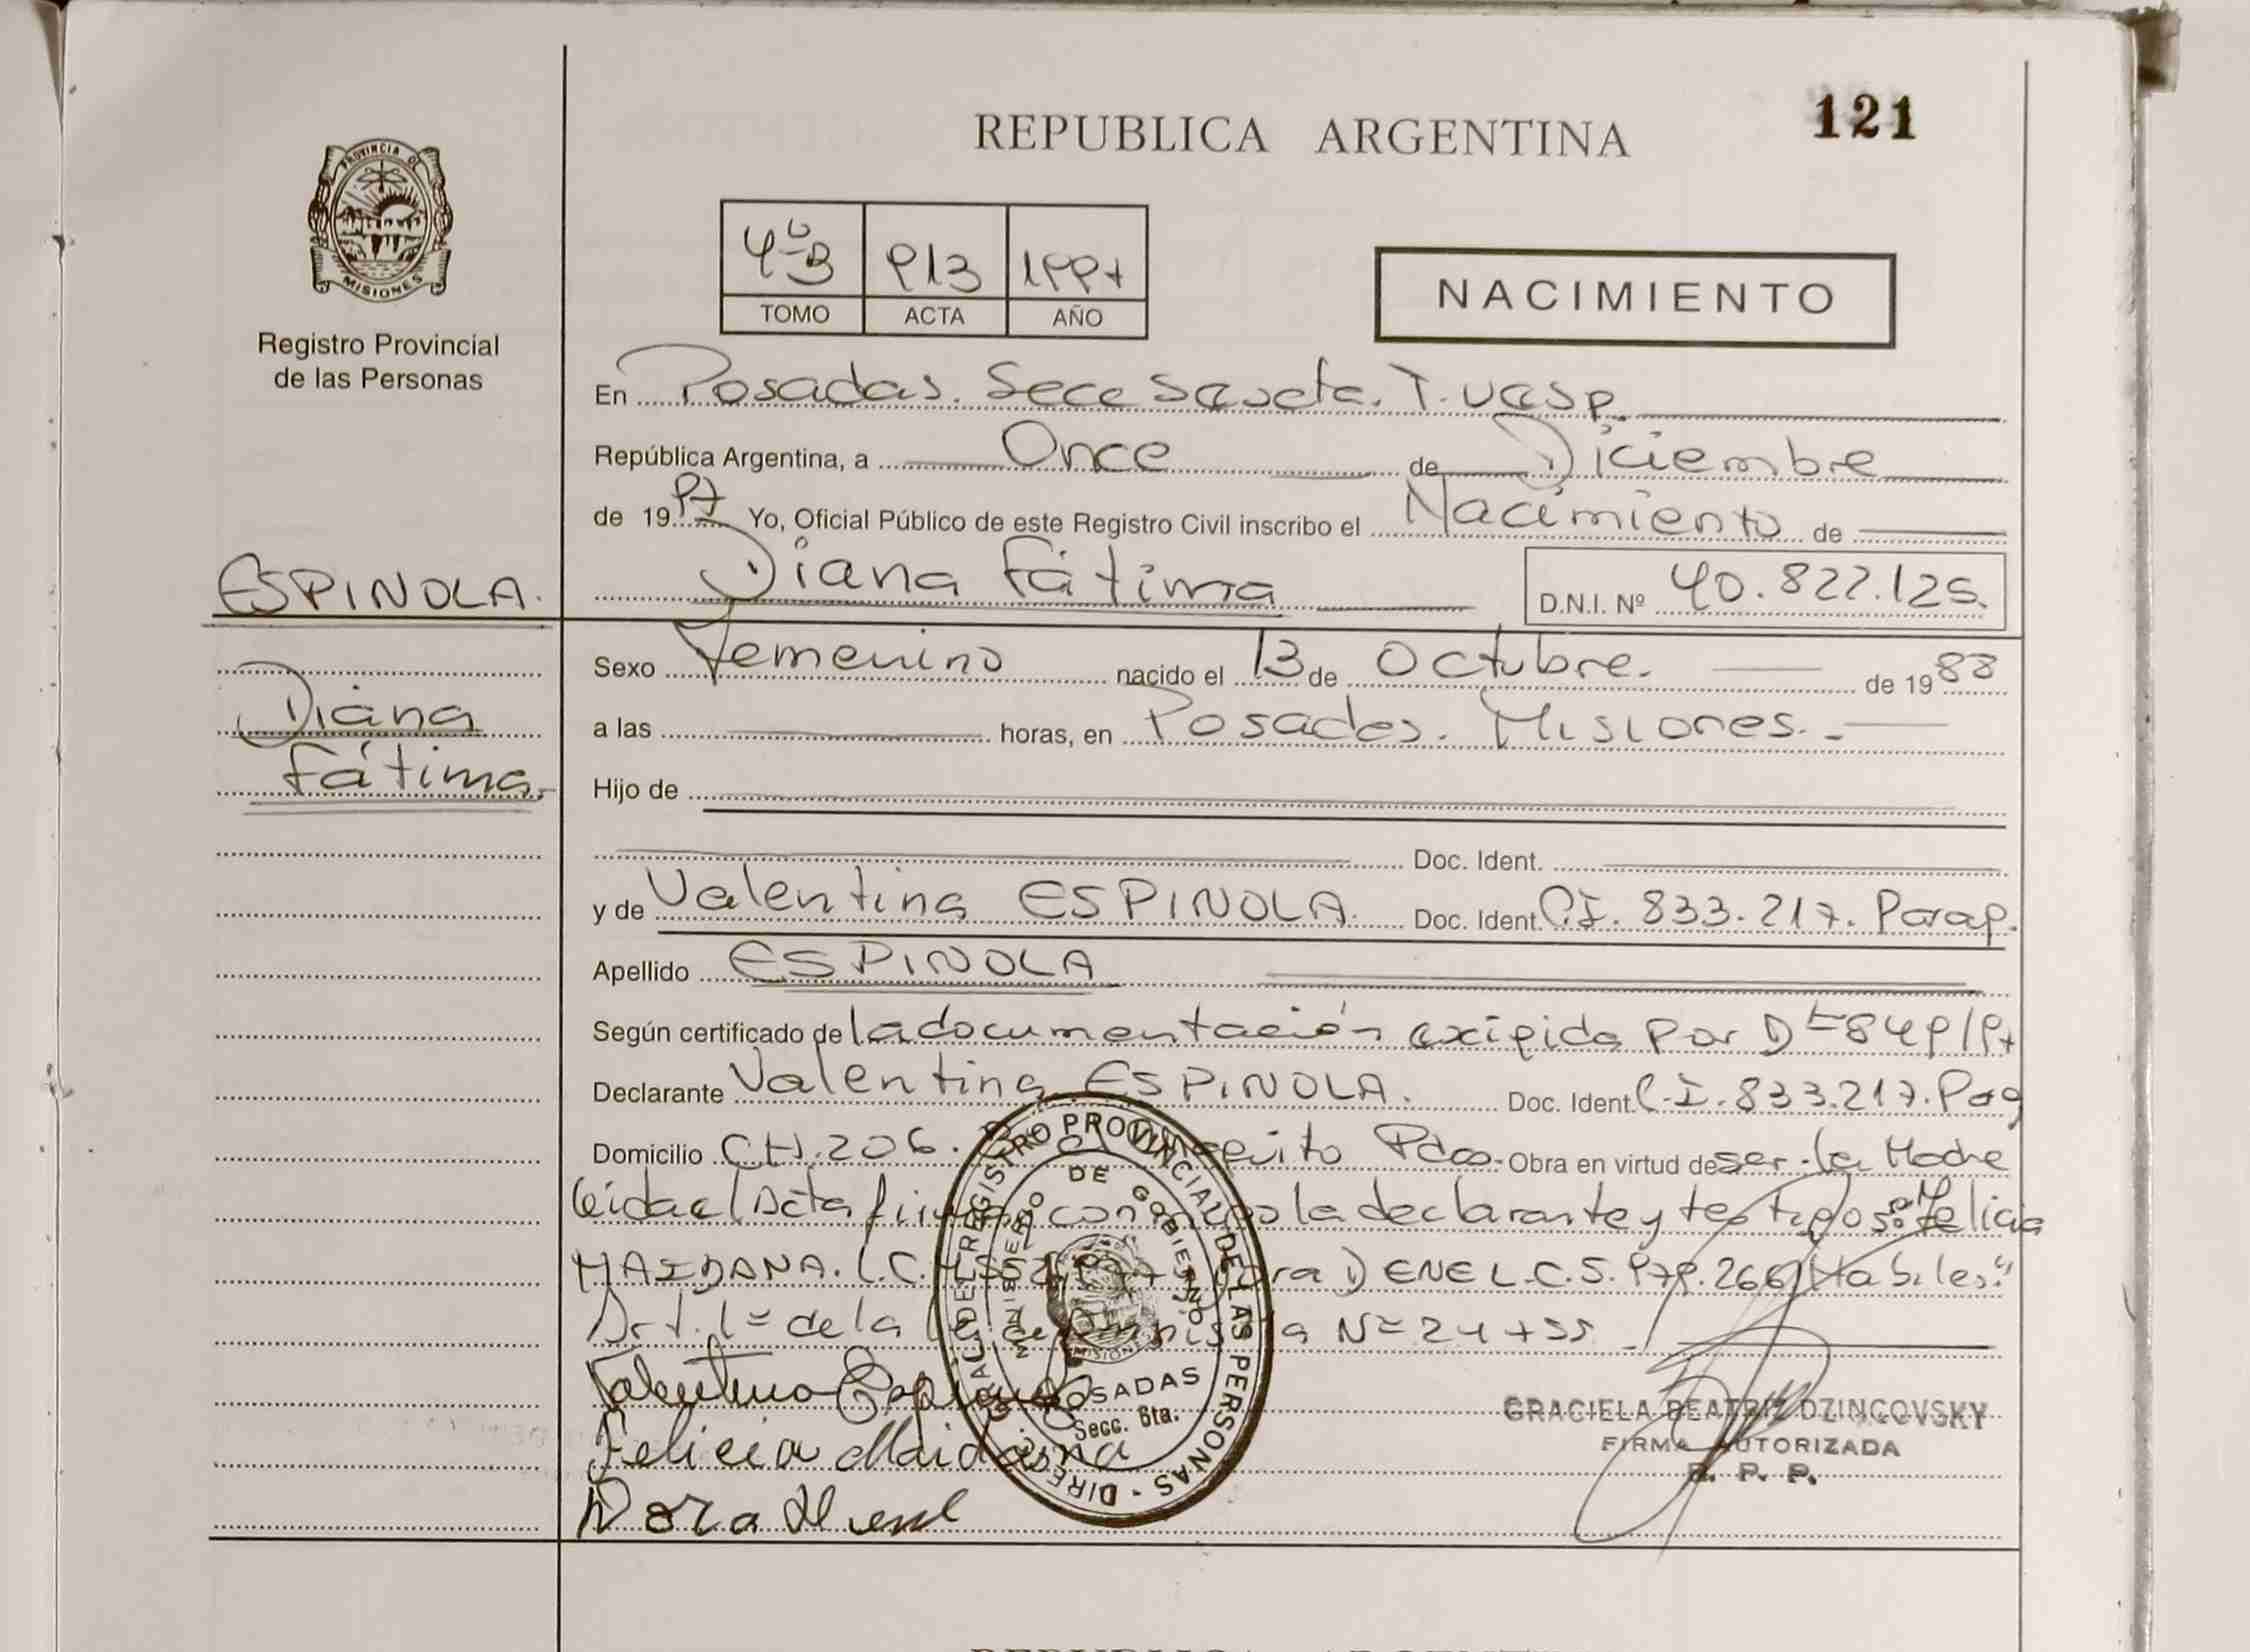 REPUBLICA ARGENTINA
121
PROVINCIA DE
MISIONES
Registro Provincial
de las Personas
4º B 913 1997
TOMO ACTA AÑO
NACIMIENTO
En Posadas. Secc
República Argentina, a Once de Diciembre
de 1997 Yo, Oficial Público de este Registro Civil inscribo el Nacimiento de
ESPINOLA.
Diana Fátima
D.N.I. Nº 40.822.125.
Diana
Fátima.
Sexo Femenino nacido el 13 de Octubre. de 1988
a las horas, en Posadas. Misiones.
Hijo de
Doc. Ident.
y de Valentina ESPINOLA. Doc. Ident. C.I. 833.217. Parag.
Apellido ESPINOLA
Según certificado de la documentación exigida por D= 849/97
Declarante Valentina ESPINOLA. Doc. Ident. C.I. 833.217. Parg
Domicilio CH. 206. Pdas. Obra en virtud de ser la Madre
Leida el Acta la declarante y testigos: Felicia
MAIDANA. L.C. DENE L.C. 5.979.266 Habiles."
Art. 1= de la Nº 24755
Valentina Espinola
Felicia Maidana
Dora
DIRECC. GRAL. DEL REGISTRO PROVINCIAL DE LAS PERSONAS
MINISTERIO DE GOBIERNO
MISIONES
POSADAS
Secc. 6ta.
GRACIELA BEATRIZ DZINCOVSKY
FIRMA AUTORIZADA
R. P. P.
REPUBLICA ARGENTINA